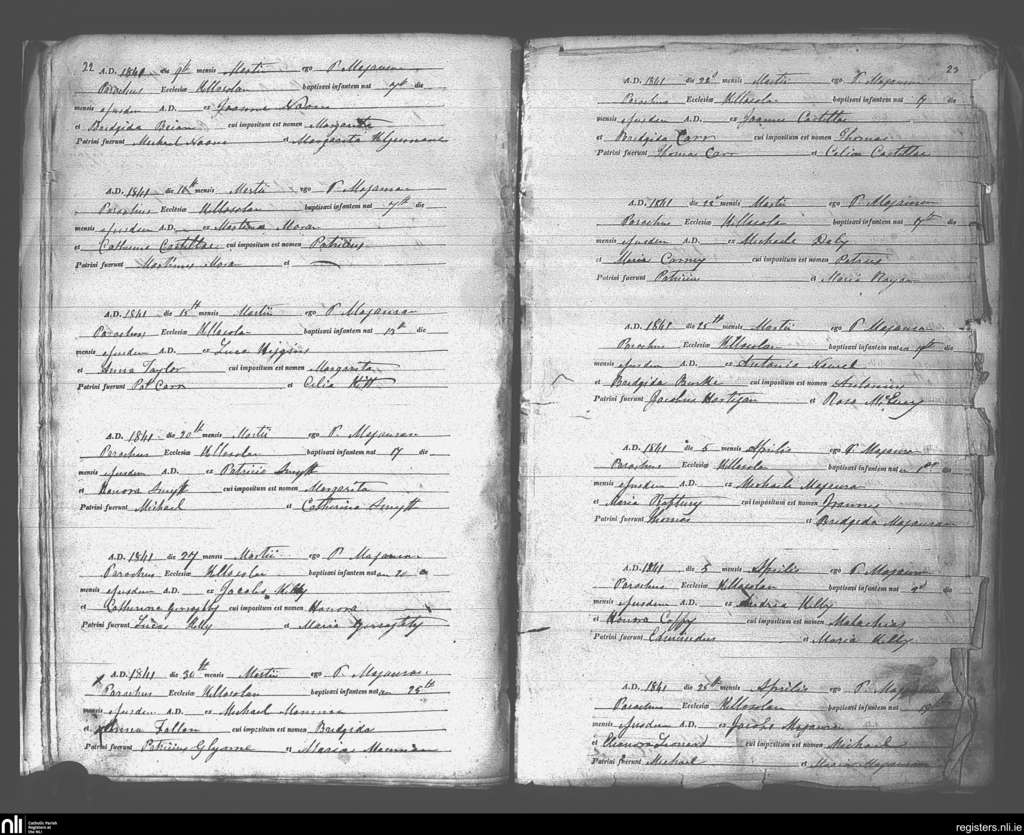 22 A.D. 1841 die 9th mensis Martii ego P. Magauran
Parochus Ecclesiæ Killasolan baptisavi infantem nat 7th die
mensis ejusdem A.D. ex Joanne Noone
et Bridgida Beian cui impositum est nomen Margarita
Patrini fuerunt Michael Noone et Margarita
A.D. 1841 die 10th mensis Martii ego P. Magauran
Parochus Ecclesiæ Killasolan baptisavi infantem nat 7th die
mensis ejusdem A.D. ex Martino Moran
et Catherina Costilloe cui impositum est nomen Patricius
Patrini fuerunt Martinus Moran et
A.D. 1841 die 15th mensis Martii ego P. Magauran
Parochus Ecclesiæ Killasolan baptisavi infantem nat 13th die
mensis ejusdem A.D. ex Luca Higgins
et Anna Taylor cui impositum est nomen Margarita
Patrini fuerunt Pat Carr et Celia
A.D. 1841 die 20th mensis Martii ego P. Magauran
Parochus Ecclesiæ Killasolan baptisavi infantem nat 17 die
mensis ejusdem A.D. ex Patricio Smyth
et Honora Smyth cui impositum est nomen Margarita
Patrini fuerunt Michael et Catherina Smyth
A.D. 1841 die 27 mensis Martii ego P. Magauran
Parochus Ecclesiæ Killasolan baptisavi infantem nat 20
mensis ejusdem A.D. ex Jacobo Kelly
et Catherina Geraghty cui impositum est nomen Honora
Patrini fuerunt Lucas Kelly et Maria Geraghty
A.D. 1841 die 30th mensis Martii ego P. Magauran
Parochus Ecclesiæ Killasolan baptisavi infantem nat 25th
mensis ejusdem A.D. ex Michael
et Anna Fallon cui impositum est nomen Bridgida
Patrini fuerunt Patricius Glynne et Maria
23
A.D. 1841 die 22d mensis Martii ego P. Magauran
Parochus Ecclesiæ Killasolan baptisavi infantem nat 17 die
mensis ejusdem A.D. ex Joanne Costilloe
et Bridgida Carr cui impositum est nomen Thomas
Patrini fuerunt Thomas Carr et Celia Costilloe
A.D. 1841 die 22d mensis Martii ego P. Magauran
Parochus Ecclesiæ Killasolan baptisavi infantem nat 17th die
mensis ejusdem A.D. ex Michaele Daly
et Maria cui impositum est nomen
Patrini fuerunt Patricius et Maria
A.D. 1841 die 25th mensis Martii ego P. Magauran
Parochus Ecclesiæ Killasolan baptisavi infantem nat die
mensis ejusdem A.D. ex Antonio
et Bridgida Burke cui impositum est nomen Antonius
Patrini fuerunt Jacobus Hartigan et Rosa
A.D. 1841 die 5 mensis Aprilis ego P. Magauran
Parochus Ecclesiæ Killasolan baptisavi infantem nat 1st die
mensis ejusdem A.D. ex Michaele Magauran
et Maria Raftery cui impositum est nomen Joannes
Patrini fuerunt Thomas et Bridgida Magauran
A.D. 1841 die 5 mensis Aprilis ego P. Magauran
Parochus Ecclesiæ Killasolan baptisavi infantem nat die
mensis ejusdem A.D. ex Andrea Kelly
et Honora cui impositum est nomen Malachias
Patrini fuerunt et Maria Kelly
A.D. 1841 die 25th mensis Aprilis ego P. Magauran
Parochus Ecclesiæ Killasolan baptisavi infantem nat
mensis ejusdem A.D. ex Jacobo Magauran
et Eleonora Leonard cui impositum est nomen Michael
Patrini fuerunt Michael et Maria Magauran
nli Catholic Parish Registers at the NLI
registers.nli.ie